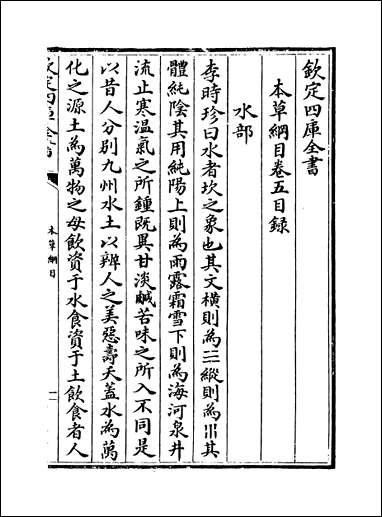 欽定四庫全書
本草綱目卷五目録
水部
李時珍曰水者坎之象也其文横則為☵縱則為〣其
體純陰其用純陽上則為雨露霜雪下則為海河泉井
流止寒温氣之所鍾既異甘淡鹹苦味之所入不同是
以昔人分别九州水土以辨人之美惡壽夭蓋水為萬
化之源土為萬物之母飲資于水食資于土飲食者人
欽定四庫全書
本草綱目